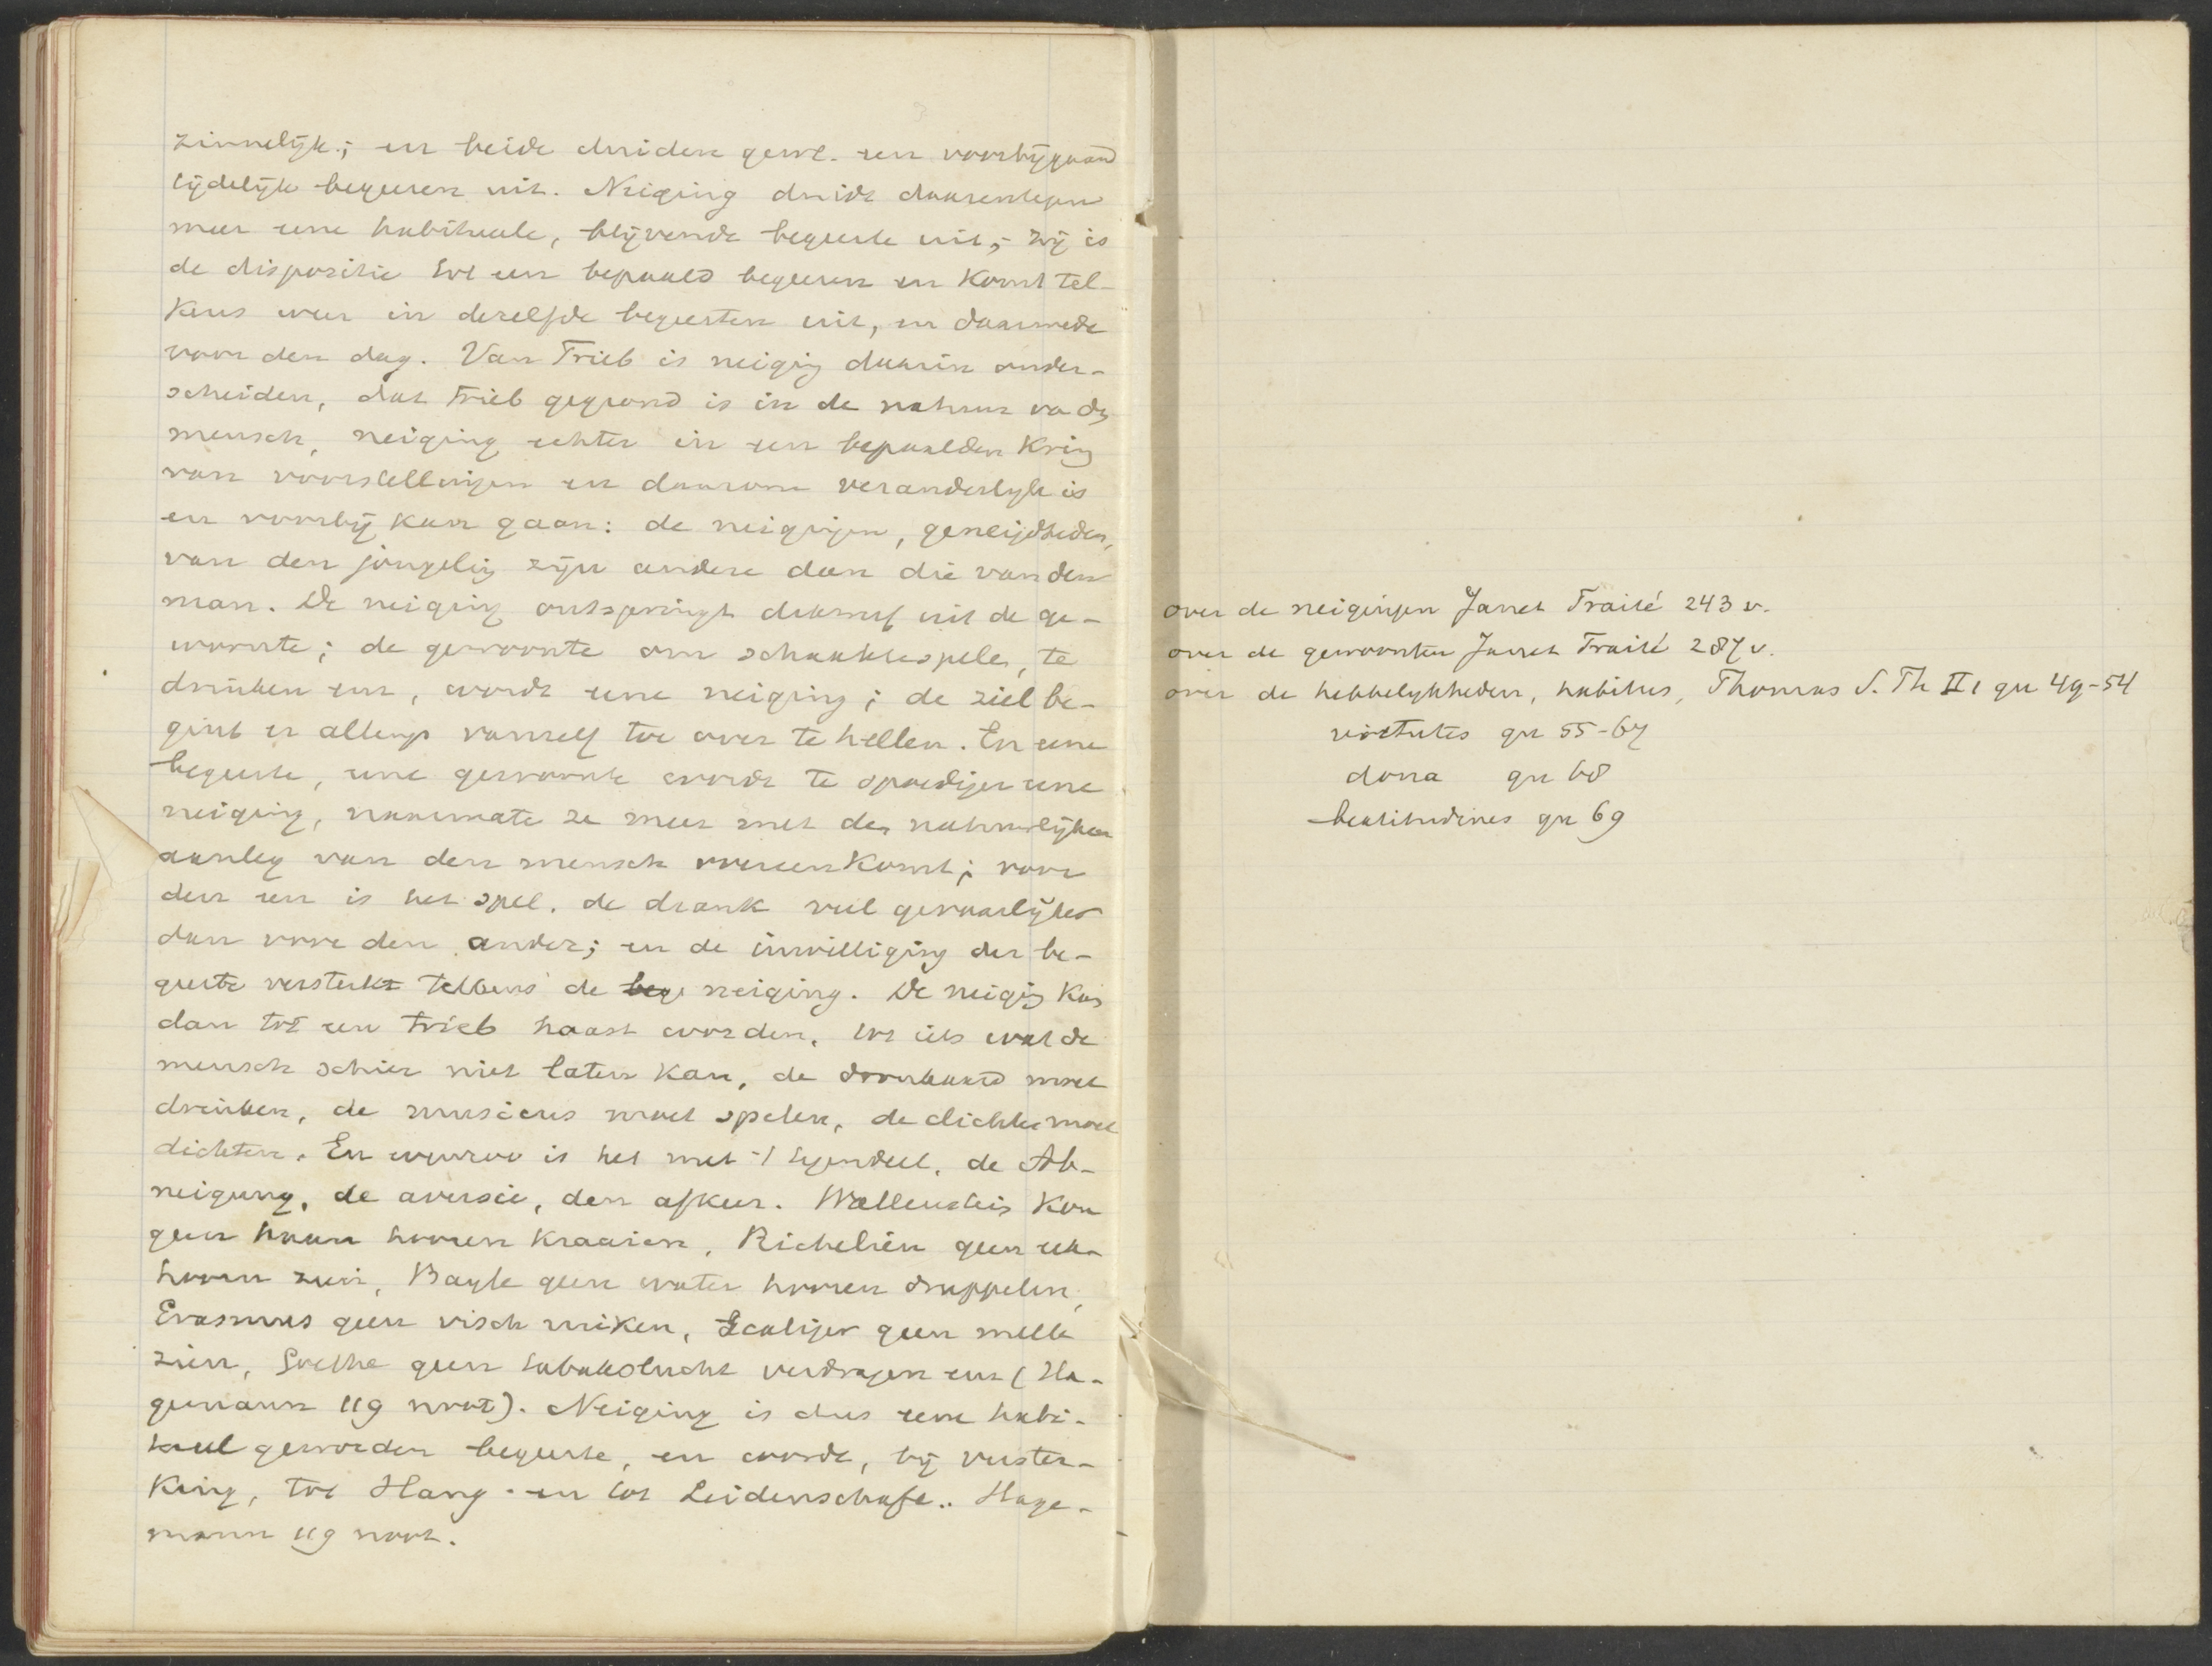 zinnelijk; en beide duiden gew. een voorbijgaand
tijdelijk begeeren uit. Neiging duidt daarentegen
meer eene habitueele, blijvende begeerte uit; zij is
de dispositie tot een bepaald begeeren en komt tel-
kens weer in dezelfde begeerten uit, en daarmede
voor den dag. Van Trieb is neiging daarin onder-
scheiden, dat trieb gegrond is in de natuur va den
mensch, neiging echter in een bepaalden kring
van voorstellingen en daarom veranderlijk is
en voorbij kan gaan: de neigingen, geneigdheden,
van den jongeling zijn andere dan die van den
man. De neiging ontspringt daarnaf uit de ge-
woonte; de gewoonte om schaaktespelen, te
drinken enz, wordt eene neiging; de ziel be-
gint er allengs vanzelf toe over te hellen. En eene
begeerte, eene gewoonte wordt te spoediger eene
neiging, naarmate ze meer met den natuurlijken
aanleg van den mensch overeenkomt; voor
den een is het spel, de drank veel gevaarlijker
dan voor den ander; en de inwilliging der be-
geerte versterkt telkens de bege neiging. De neiging kan
dan tot een trieb haast worden, tot iets wat de
mensch schier niet laten kan, de dronkaard moet
drinken, de musicus moet spelen, de dichter moet
dichten. En evenzoo is het met 't tegendeel, de Ab-
neigung, de aversie, den afkeer. Wallenstein kon
geen haan hooren kraaien, Richelieu geen eek-
hoorn zien, Bayle geen water hooren druppelen,
Erasmus geen visch ruiken, Scaliger geen melk
zien, Goethe geen tabakslucht verdragen enz (Ha-
gemann 119 noot). Neiging is dus eene habi-
tueel geworden begeerte, en wordt, bij verster-
king, tot Hang en tot Leidenschaft. Hage-
mann 119 noot.
over de neigingen Janet Traité 243 v.
over de gewoonten Janet Traité 287 v.
over de hebbelijkheden, habitus, Thomas S. Th II 1 qu 49-54
virtutes qu 55-67
dona qu 68
beatitudines qu 69